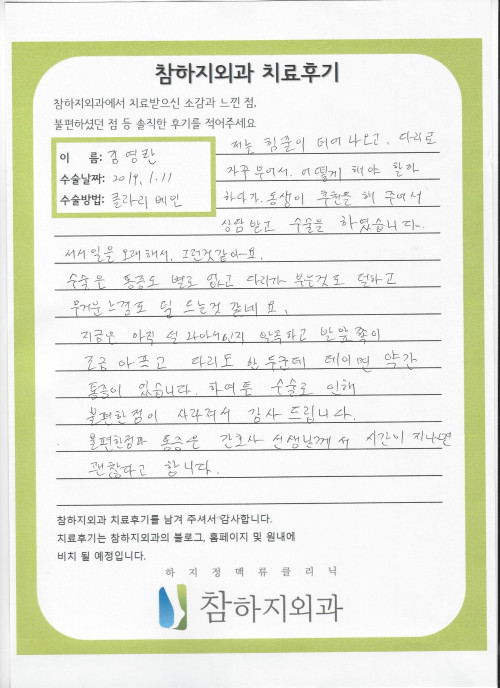 참하지외과 치료후기
참하지외과에서 치료받으신 소감과 느낀 점,
불편하셨던 점 등 솔직한 후기를 적어주세요
이 름: 김영란
수술날짜: 2019. 1. 11
수술방법: 클라리베인
저는 힘줄이 튀어 나오고, 다리도
자주 부어서, 어떻게 해야 할까
하다가, 동생이 추천을 해 주어서
상담받고 수술을 하였습니다.
서서 일을 오래해서, 그런것같아요.
수술은 통증도 별로 없고 다리가 부은것도 덜하고
무거운 느낌도 덜 드는것 같네요.
지금은 아직 덜 나아서인지 발앞쪽이
조금 아프고 다리도 한두군데 약간
통증이 있습니다. 하여튼 수술로 인해
불편한점이 사라져서 감사드립니다.
불편한점과 통증은 간호사 선생님께서 시간이 지나면
괜찮다고 합니다.
참하지외과 치료후기를 남겨 주셔서 감사합니다.
치료후기는 참하지외과의 블로그, 홈페이지 및 원내에
비치 될 예정입니다.
하지정맥류클리닉
참하지외과